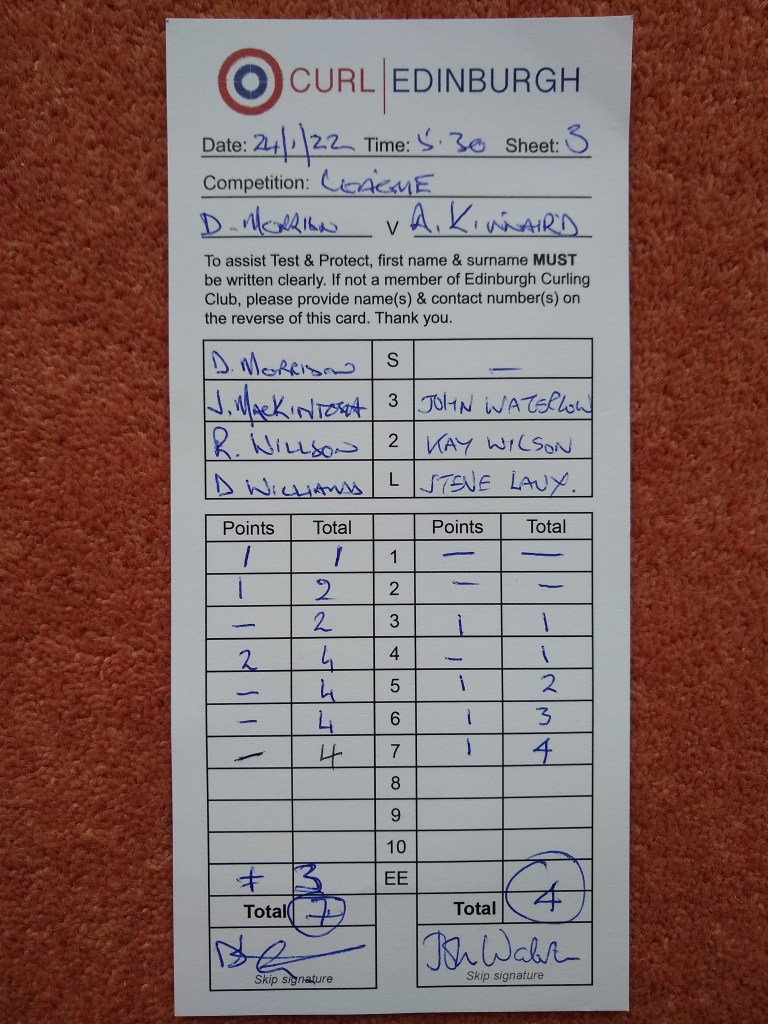 CURL | EDINBURGH
Date: 24/1/22 Time: 5.30 Sheet: 3
Competition: LEAGUE
D. MORRISON V A. KINNAIRD
To assist Test & Protect, first name & surname MUST
be written clearly. If not a member of Edinburgh Curling
Club, please provide name(s) & contact number(s) on
the reverse of this card. Thank you.
D. MORRISON S —
J. MACKINTOSH 3 JOHN WATERLOW
R. WILLSON 2 KAY WILSON
D WILLIAMS L STEVE LAUX.
Points Total Points Total
1 1 1 — —
1 2 2 — —
— 2 3 1 1
2 4 4 — 1
— 4 5 1 2
— 4 6 1 3
— 4 7 1 4
8
9
10
3 EE
Total 7 Total 4
Skip signature Skip signature